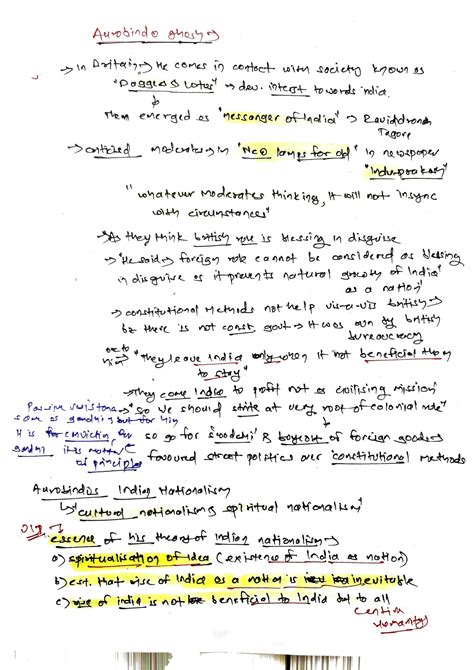 Aurobindo ghosh→
→ In Britain → He comes in contact with society known as
"Dagger & Lotus" → dev. interest towards india.
Then emerged as "messenger of India" → Ravindranath
Tagore
→ criticised moderates → in "NEO lamps for old" in newspaper
"Induprakash"
"whatever moderates thinking, it will not insync
with circumstances"
→ As they think british rule is blessing in disguise
→ "He said → foreign rule cannot be considered as blessing
in disguise as it prevents natural growth of India
as a nation"
→ constitutional methods not help vis-a-vis british →
bz there is not const. govt → It was run by british
bureaucracy
acc to him → "They leave India only when it not beneficial them
to stay"
→ They come India to profit not as civilising mission
→ "So we should strike at very root of colonial rule"
Passive resistance
same as gandhi but for him
It is for conviction, for
gandhi it is matter
of principle
so go for swadeshi & boycott of foreign goods
favoured street politics over constitutional methods
Aurobindo's Indian Nationalism
↳ "cultural nationalism & spiritual nationalism"
essence of his theory of Indian nationalism
a) spiritualisation of idea (existence of India as nation)
b) est. that rise of India as a nation is inevitable
c) rise of india is not beneficial to India but to all
entire
Humanity